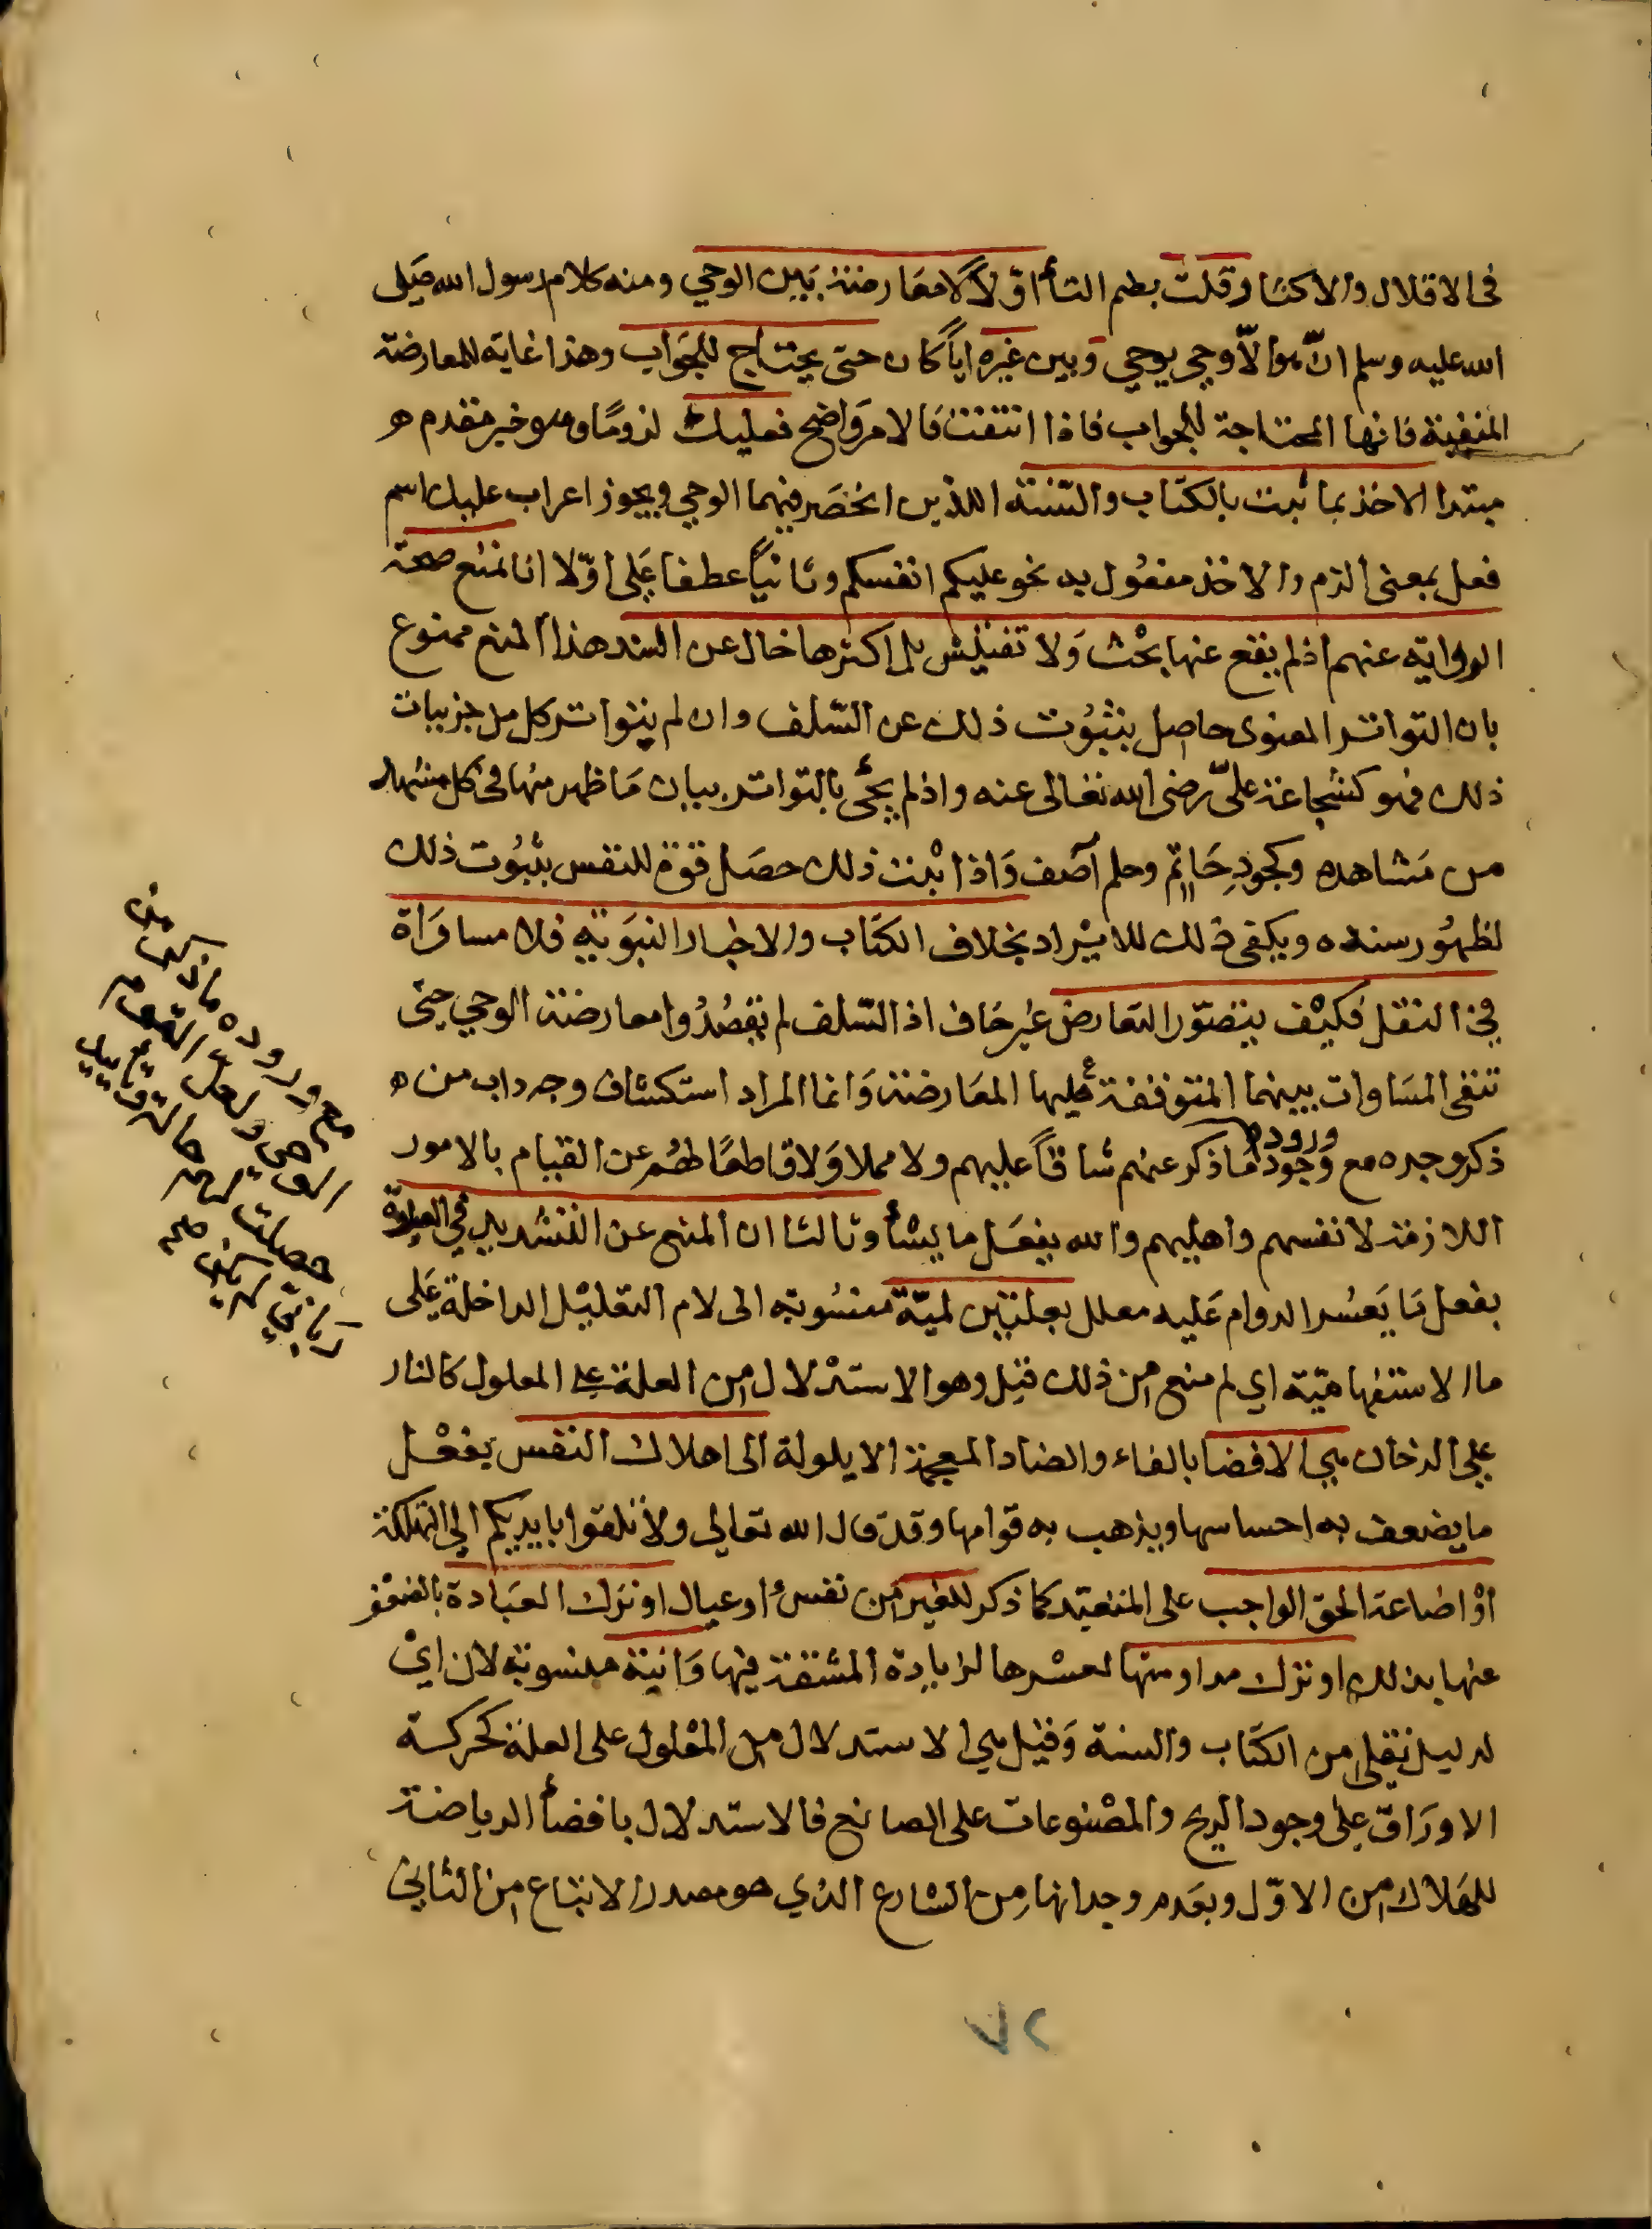 في الاقلال والاكثار وقلت بضم التاأ اوّلاً لا معَارضة بَين الوحي ومنه كلام رسول الله صَلى
الله عليه وسلم ان هو الاّ وحي يوحي وبين غيره اياً كان حتى يحتاج للجَواب وهذا غاية للمعارضة
المنفية فانها المحتاجة للجواب فاذا انتفت فالامر وَاضح فعليك لزومًا وهو خبر مقدم ه
مبتدا الاخذ بما ثبت بالكتاب والسّنة اللذين انحصَر فيهما الوحي ويجوز اعراب عليك اسم
فعل بمعنى الزم والاخذ مفعُول به نحو عليكم انفسكم وثانياً عطفا عَلى اوّلا انا نمنع صحة
الرواية عنهم اذ لم يقع عنها بحْث وَلا تفتيْش بل اكثرها خال عن السند هذا المنع ممنوع
بان التواتر المعنوى حاصل بثبُوت ذلك عن السّلف وان لم يتواتر كل من جزييات
ذلك فهو كشجاعة علىّ رضى الله تعالى عنه واذ لم يجئ بالتواتر بيان مَا ظهر منها في كل مشهد
من مَشاهده وكجودِ حَاتم وحلم آصف وَاذا ثبت ذلك حصَل قوة للنفس بثبُوت ذلك
لظهُور سنده ويكفى ذلك للايْراد بخلاف الكتاب والاخبار النبَوَيةِ فلا مساوَاة
في النقل فكيْف يتصوّر التعَارض غيْر خاف اذ السّلف لم يقصُدُوا معارضة الوحي حتى
تنفى المسَاوات بينهما المتوقفة عليها المعَارضة وَانما المراد استكشاف وجه داب من ه
ذكر وجده مع وجود وروده مَا ذكر عنهم شاقاً عليهم ولا مملا وَلا قاطعًا لهُم عن القيام بالامور
اللازمة لانفسهم واهليهم والله يفعَل ما يشأ وثالثا ان المنع عن التشديد في العبادة
بفعل مَا يَعسُر الدوام عَليه معلل بعلتين لميّة منسُوبة الى لام التعليْل الداخلة عَلى
ما الاستفهاميّة اي لم منع من ذلك قيْل وهو الاستدْلال من العلة على المعلول كالنار
على الدخان هي الافضا بالفاء والضاد المعجمة الايلولة الى اهلاك النفس بفعْل
ما يضعف به احساسها ويذهب به قوامها وقد قال الله تعالى ولا تلقوا بايديكم الى التهلكة
اوْ اضاعة الحق الواجب على المتعبّد كما ذكر للغير من نفس او عيال او ترك العبَادة بالضعْف
عنها بذلك او ترك مداومتها لعسْرها لزيادة المشقة فيها وَانية منسوبة لان ايْ
لدليل نقلي من الكتاب والسنة وَقيْل هي الاستدلال من المعْلول على العلة كحركة
الاورَاق على وجود الريح والمصْنوعات على الصانع فالاستدلال بافضأ الرياضة
للهَلاك من الاوّل وبعَدم وجدانها من الشارع الذي هو مصدر الاتباع من الثاني
مع وروده ما ذكر من
٧٢